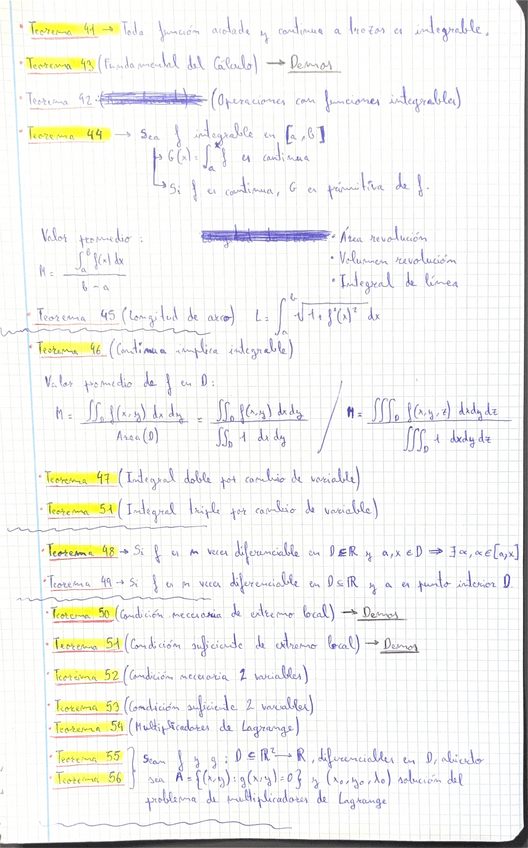 • Teorema 41 → Toda función acotada y continua a trozos es integrable.
• Teorema 43 (Fundamental del Cálculo) → Demos
• Teorema 42 (Operaciones con funciones integrables)
• Teorema 44 → Sea f integrable en [a, b]
↳ G(x) = ∫ₐˣ f es continua
↳ Si f es continua, G es primitiva de f.
Valor promedio :
M = ∫ₐᵇ f(x) dx / b - a
• Área revolución
• Volumen revolución
• Integral de línea
• Teorema 45 (Longitud de arco) L = ∫ₐᵇ √(1 + f'(x)²) dx
• Teorema 46 (Continua implica integrable)
Valor promedio de f en D :
M = ∬_D f(x,y) dx dy / Area(D) = ∬_D f(x,y) dx dy / ∬_D 1 dx dy / M = ∭_D f(x,y,z) dxdydz / ∭_D 1 dxdydz
• Teorema 47 (Integral doble por cambio de variable)
• Teorema 51 (Integral triple por cambio de variable)
• Teorema 48 → Si f es n veces diferenciable en D ⊆ ℝ y a, x ∈ D ⇒ ∃ α, α ∈ [a,x]
• Teorema 49 → Si f es n veces diferenciable en D ⊆ ℝ y a es punto interior D.
• Teorema 50 (Condición necesaria de extremo local) → Demos
• Teorema 51 (Condición suficiente de extremo local) → Demos
• Teorema 52 (Condición necesaria 2 variables)
• Teorema 53 (Condición suficiente 2 variables)
• Teorema 54 (Multiplicadores de Lagrange)
• Teorema 55 } Sean f y g : D ⊆ ℝ² → ℝ, diferenciables en D, abierto
• Teorema 56 } sea A = {(x,y) : g(x,y) = 0} y (x₀, y₀, λ₀) solución del
problema de multiplicadores de Lagrange